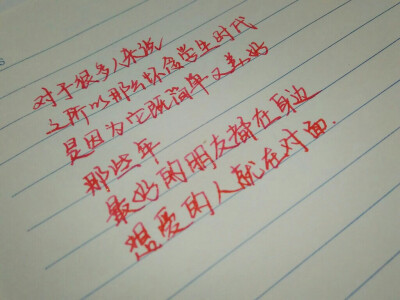 对于很多人来说
之所以那么怀念学生时代
是因为它既简单又美好
那些年
最好的朋友都在身边
想爱的人就在对面.